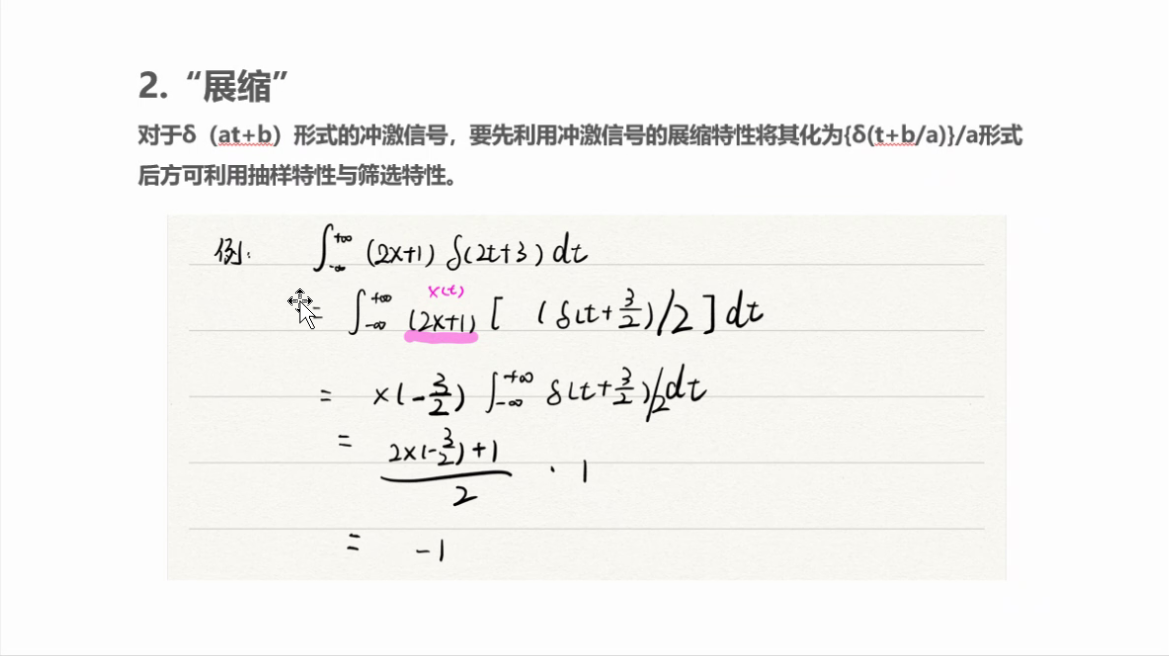 2. “展缩”
对于δ（at+b）形式的冲激信号，要先利用冲激信号的展缩特性将其化为{δ(t+b/a)}/a形式
后方可利用抽样特性与筛选特性。
例: ∫_{-∞}^{+∞} (2x+1) δ(2t+3) dt
x(t)
= ∫_{-∞}^{+∞} (2x+1) [ (δ(t+3/2)/2 ] dt
= x(-3/2) ∫_{-∞}^{+∞} δ(t+3/2)/2 dt
= (2×(-3/2)+1)/2 · 1
= -1